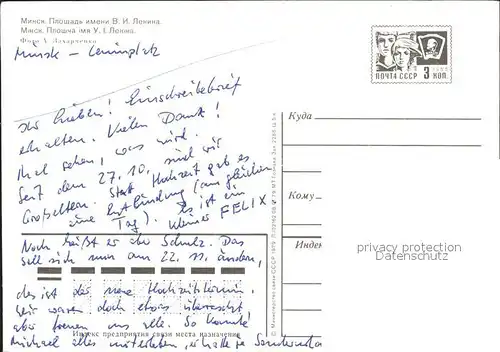 Минск. Площадь имени В. И. Ленина.
Мінск. Плошча імя У. І. Леніна.
Фото А. Захарченко
Minsk - Leninplatz
Ihr Lieben! Einschreibebrief
erhalten. Vielen Dank!
Mal sehen, was wird.
Seit dem 27.10. sind wir
Großeltern. Statt Hochzeit gab es
eine Entbindung (am gleichen
Tag). Es ist ein
kleiner FELIX
Noch heißt er Schulz. Das
soll sich nun am 22.11. ändern,
das ist der neue Hochzeitstermin.
Wir waren doch etwas überrascht
aber freuen uns alle. So konnte
Michael alles miterleben, erhalte
ПОЧТА СССР 3 КОП.
Куда
Кому
Индекс
Индекс предприятия связи места назначения
© Министерство связи СССР 1979
privacy protection
by DeltaArts